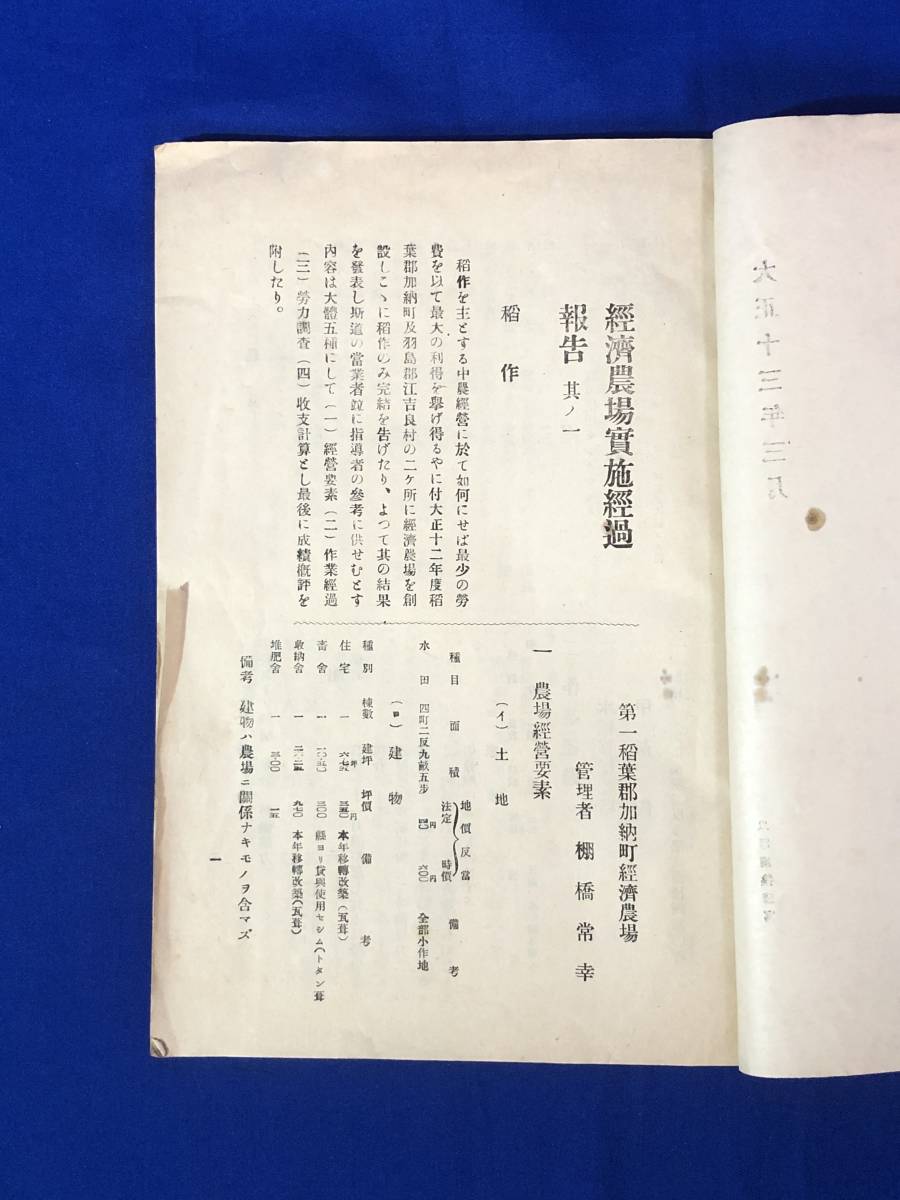 經濟農場實施經過
報告 其ノ一
稻作
稻作を主とする中農經營に於て如何にせば最少の勞
費を以て最大の利得を擧げ得るやに付大正十二年度稻
葉郡加納町及羽島郡江吉良村の二ケ所に經濟農場を創
設しこゝに稻作のみ完結を告げたり、よつて其の結果
を發表し斯道の當業者竝に指導者の參考に供せむとす
內容は大體五種にして(一)經營要素(二)作業經過
(三)勞力調查(四)收支計算とし最後に成績槪評を
附したり。
第一稻葉郡加納町經濟農場
管理者 棚橋常幸
一 農場經營要素
(イ)土地
種目 面積 地價反當 法定 時價 備考
水田 四町二反九畝五步 円 六〇〇円 全部小作地
(ロ)建物
種別 棟數 建坪 坪價 備考
住宅 一 坪 円 本年移轉改築(瓦葺)
畜舍 一 三〇〇 縣ヨリ貸與使用セシム(トタン葺
收納舍 一 本年移轉改築(瓦葺)
堆肥舍 一
備考 建物ハ農場ニ關係ナキモノヲ含マズ
一
大正十三年三月